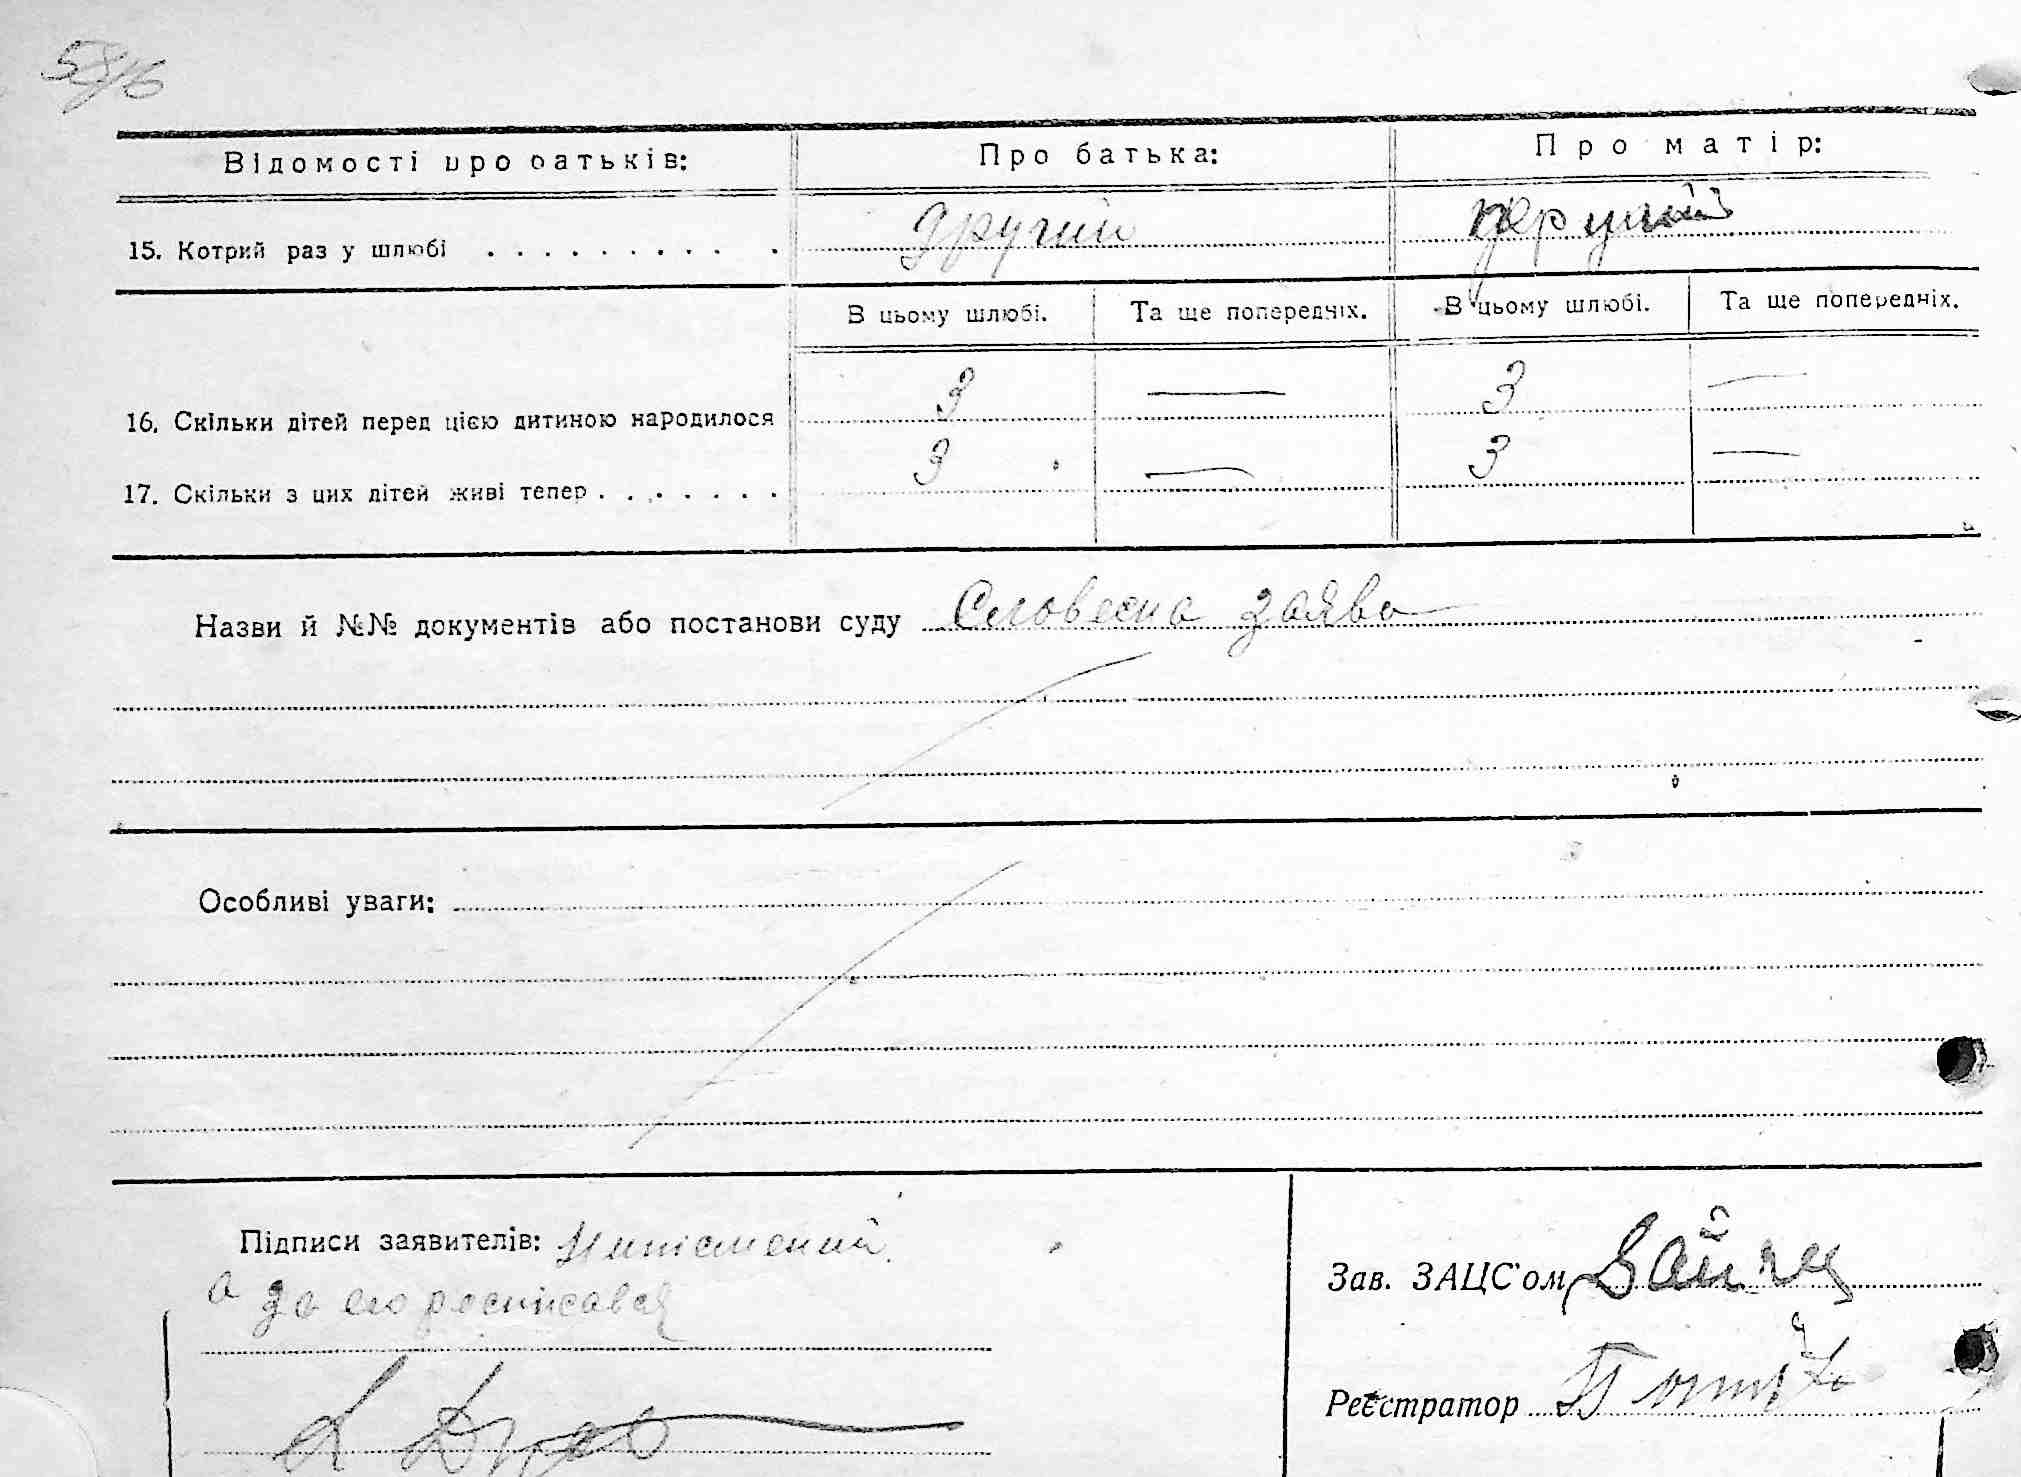 58/16
Відомості про батьків: Про батька: Про матір:
15. Котрий раз у шлюбі . . . . . . . . . . другий перший
В цьому шлюбі. Та ще попередніх. В цьому шлюбі. Та ще попередніх.
16. Скільки дітей перед цією дитиною народилося 3 — 3 —
17. Скільки з цих дітей живі тепер . . . . . . . 3 — 3 —
Назви й №№ документів або постанови суду Словесна заява
Особливі уваги:
Підписи заявителів: Нипісмений
а за его росписався
Зав. ЗАЦС'ом Заїц
Реєстратор